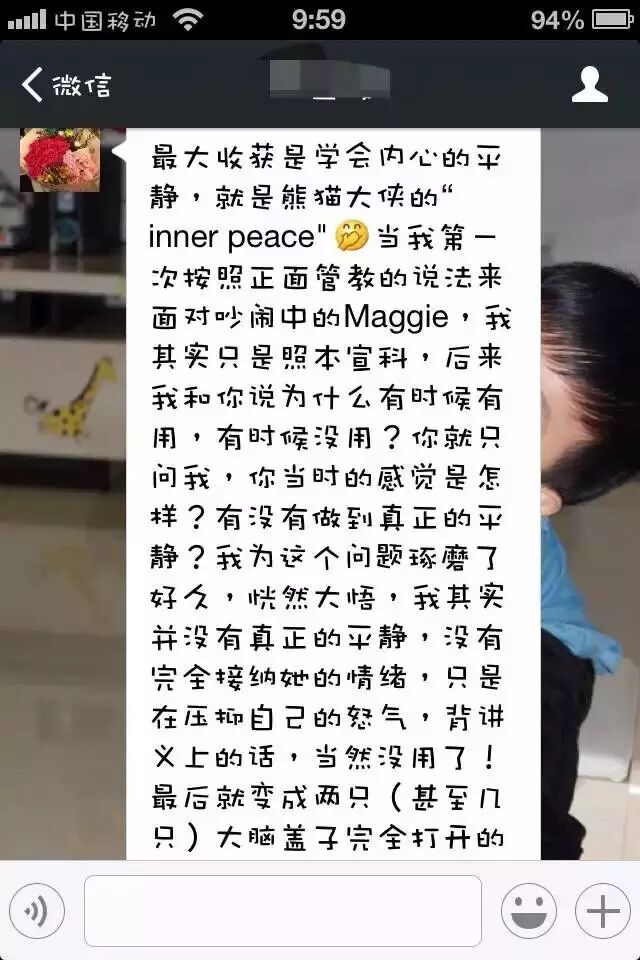 中国移动
9:59
94%
微信
最大收获是学会内心的平
静，就是熊猫大侠的“
inner peace"🤭当我第一
次按照正面管教的说法来
面对吵闹中的Maggie，我
其实只是照本宣科，后来
我和你说为什么有时候有
用，有时候没用？你就只
问我，你当时的感觉是怎
样？有没有做到真正的平
静？我为这个问题琢磨了
好久，恍然大悟，我其实
并没有真正的平静，没有
完全接纳她的情绪，只是
在压抑自己的怒气，背讲
义上的话，当然没用了！
最后就变成两只（甚至几
只）大脑盖子完全打开的